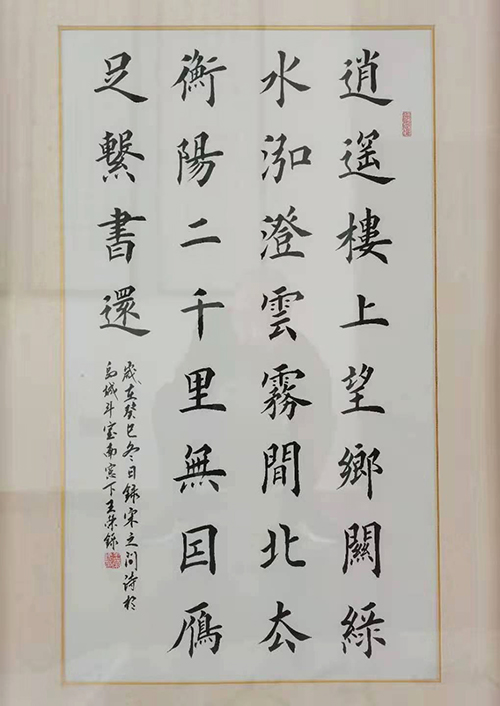 逍遙樓上望鄉關綠
水泓澄雲霧間北去
衡陽二千里無因雁
足繫書還
歲在癸巳冬日錄宋之問詩於
島城斗室南窗下王